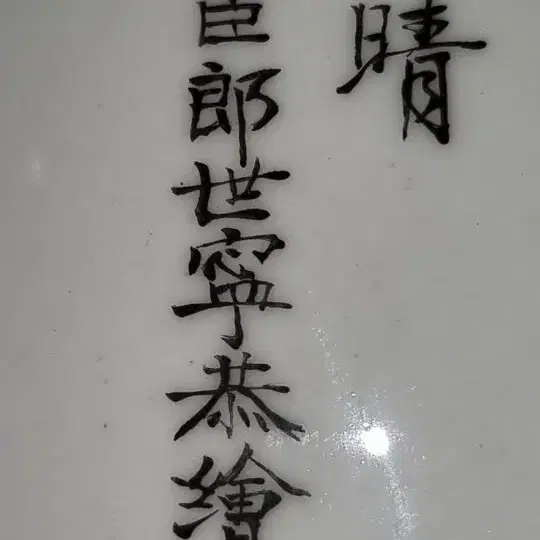 晴
臣郎世寧恭繪